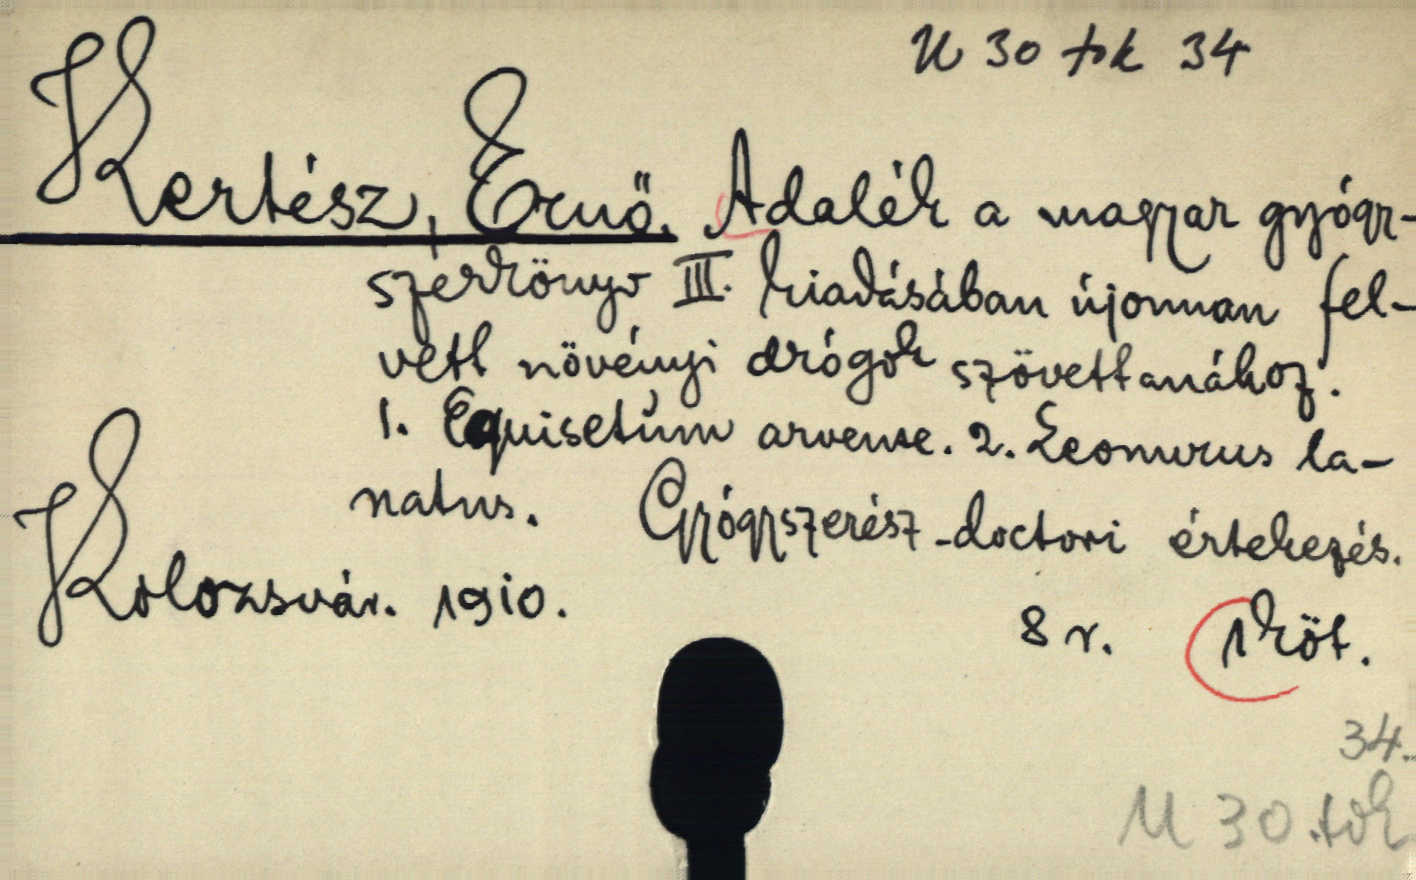 U 30 tok 34
Kertész, Ernő. Adalék a magyar gyógy-
szerkönyv III. kiadásában újonnan fel-
vett növényi drógok szövettanához.
1. Equisetum arvense. 2. Leonurus la-
natus. Gyógyszerész-doctori értekezés.
Kolozsvár. 1910.
8 r. 1 köt.
34.
U 30 tok